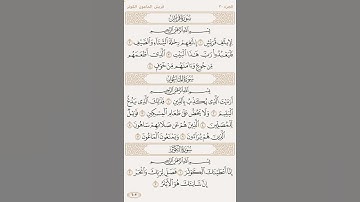 الجزء ٣٠ قريش الماعون الكوثر
سورة قريش
بسم الله الرحمن الرحيم
لإيلاف قريش ۝ إيلافهم رحلة الشتاء والصيف ۝
فليعبدوا رب هذا البيت ۝ الذي أطعمهم
من جوع وءامنهم من خوف ۝
سورة الماعون
بسم الله الرحمن الرحيم
أرءيت الذي يكذب بالدين ۝ فذلك الذي يدع
اليتيم ۝ ولا يحض على طعام المسكين ۝ فويل
للمصلين ۝ الذين هم عن صلاتهم ساهون ۝
الذين هم يراءون ۝ ويمنعون الماعون ۝
سورة الكوثر
بسم الله الرحمن الرحيم
إنا أعطيناك الكوثر ۝ فصل لربك وانحر ۝
إن شانئك هو الأبتر ۝
٦٠٢